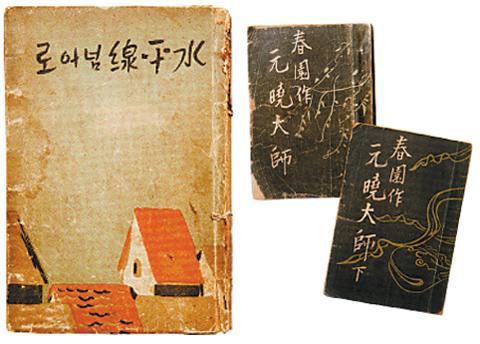 水·平·線넘어로
春園作
元曉大師
春園作
元曉大師 下